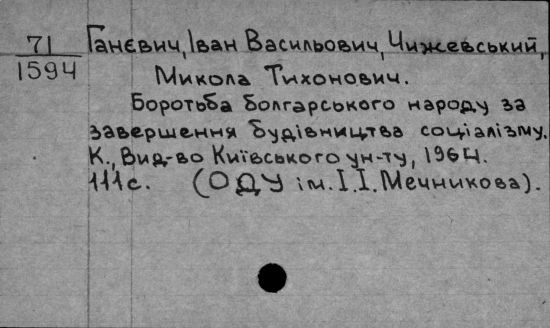 71
1594
Ганєвич, Іван Васильович, Чижевський,
Микола Тихонович.
Боротьба болгарського народу за
завершення будівництва соціалізму.
К., Вид-во Київського ун-ту, 1964.
111с. (ОДУ ім. І.І. Мечникова).